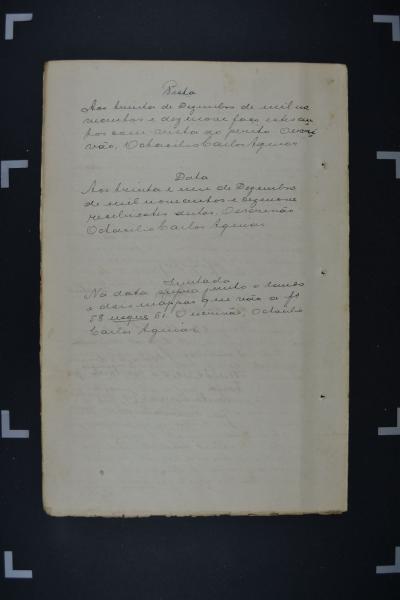 Vista
Aos trinta de Dezembro de mil no
vecentos e dezenove faço estes au
tos com vista ao perito O escri
vão, Octacilio Carlos Aguiar
Data
Aos trinta e um de Dezembro
de mil novecentos e dezenove
recebi estes autos. O escrivão
Octacilio Carlos Aguiar
Juntada
Na data supra junto o laudo
e dois mappas que vão a fs
58 usque 61. O escrivão, Octacilio
Carlos Aguiar